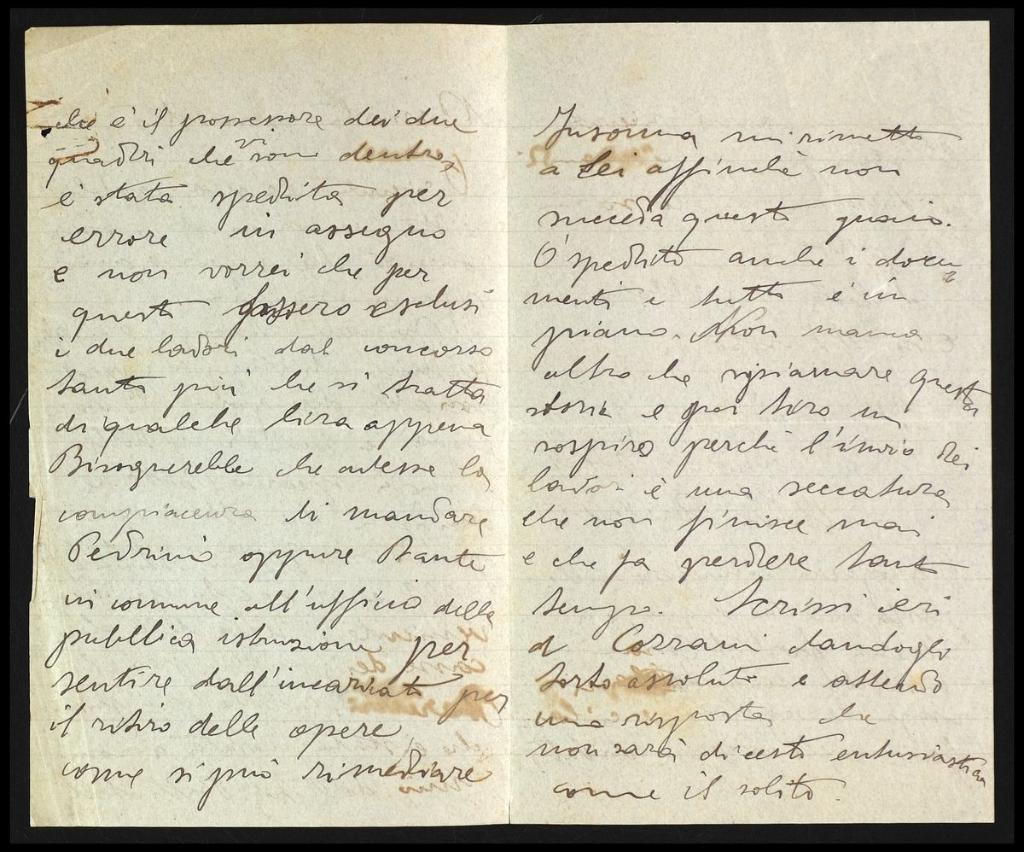 che è il possessore dei due
quadri che vi sono dentro,
è stata spedita per
errore in assegno
e non vorrei che per
questo fossero esclusi
i due lavori dal concorso
tanto più che si tratta
di qualche lira appena
Bisognerebbe che avesse la
compiacenza di mandare
Pedrini oppure Dante
in comune all'ufficio della
pubblica istruzione per
sentire dall'incaricato per
il ritiro delle opere
come si può rimediare
Insomma mi rimetto
a Lei affinchè non
succeda questo guaio.
Ò spedito anche i docu
menti e tutto è in
piano. Non manca
altro che ripianare questa
storia e poi tiro un
sospiro perchè l'invio dei
lavori è una seccatura
che non finisce mai
e che fa perdere tanto
tempo. Scrissi ieri
a Cozzani dandogli
torto assoluto e attendo
una risposta che
non sarà di certo entusiastica
come il solito.